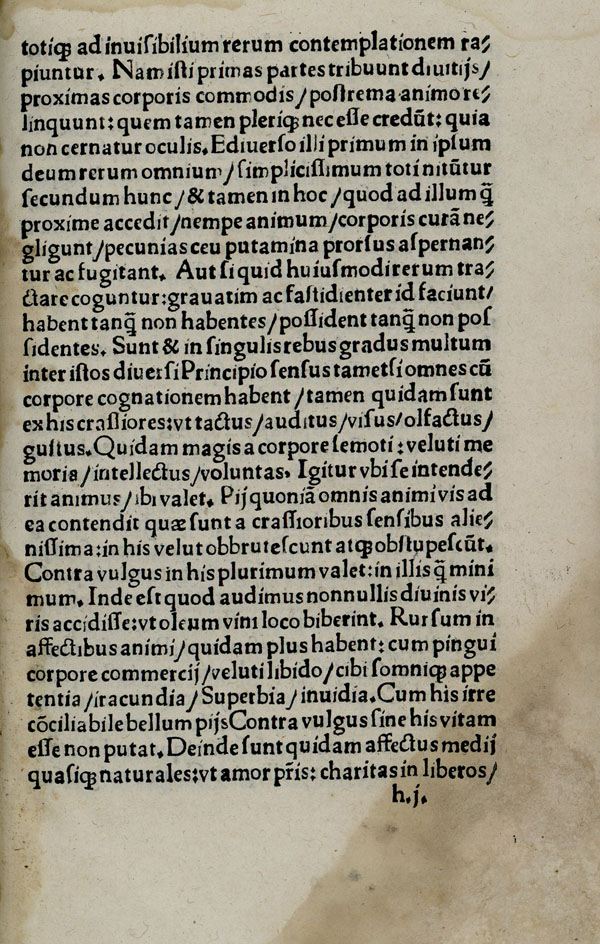 totiqꝫ ad inuiſibilium rerum contemplationem ra⸗
piuntur. Nam iſti primas partes tribuunt diuitijs/
proximas corporis commodis/poſtrema animo re⸗
linquunt: quem tamen pleriqꝫ nec eſſe credūt: quia
non cernatur oculis. Ediuerſo illi primum in ipſum
deum rerum omnium/ſimpliciſſimum toti nitūtur
ſecundum hunc/& tamen in hoc/quod ad illum q̄
proxime accedit/nempe animum/corporis curā ne⸗
gligunt/pecunias ceu putamina prorſus aſpernan⸗
tur ac fugitant. Aut ſi quid huiuſmodi rerum tra⸗
ctare coguntur: grauatim ac faſtidienter id faciunt/
habent tanq̄ non habentes/poſſident tanq̄ non poſ
ſidentes. Sunt & in ſingulis rebus gradus multum
inter iſtos diuerſi Principio ſenſus tametſi omnes cū
corpore cognationem habent/tamen quidam ſunt
ex his craſſiores: vt tactus/auditus/viſus/olfactus/
guſtus. Quidam magis a corpore ſemoti: veluti me
moria/intellectus/voluntas. Igitur vbi ſe intende⸗
rit animus/ibi valet. Pij quoniā omnis animi vis ad
ea contendit quæ ſunt a craſſioribus ſenſibus alie⸗
niſſima: in his velut obbruteſcunt atqꝫ obſtupeſcūt.
Contra vulgus in his plurimum valet: in illis q̄ mini
mum. Inde eſt quod audimus nonnullis diuinis vi⸗
ris accidiſſe: vt oleum vini loco biberint. Rurſum in
affectibus animi/quidam plus habent: cum pingui
corpore commercij/veluti libido/cibi ſomniqꝫ appe
tentia/iracundia/Superbia/inuidia. Cum his irre
cōciliabile bellum pijs Contra vulgus ſine his vitam
eſſe non putat. Deinde ſunt quidam affectus medij
quaſiqꝫ naturales: vt amor pr̄is: charitas in liberos/
h.j.